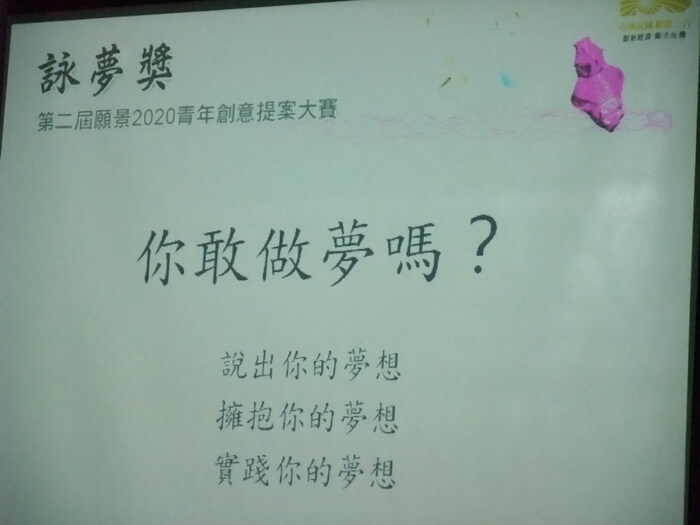 詠夢獎
第二屆願景2020青年創意提案大賽
你敢做夢嗎？
說出你的夢想
擁抱你的夢想
實踐你的夢想